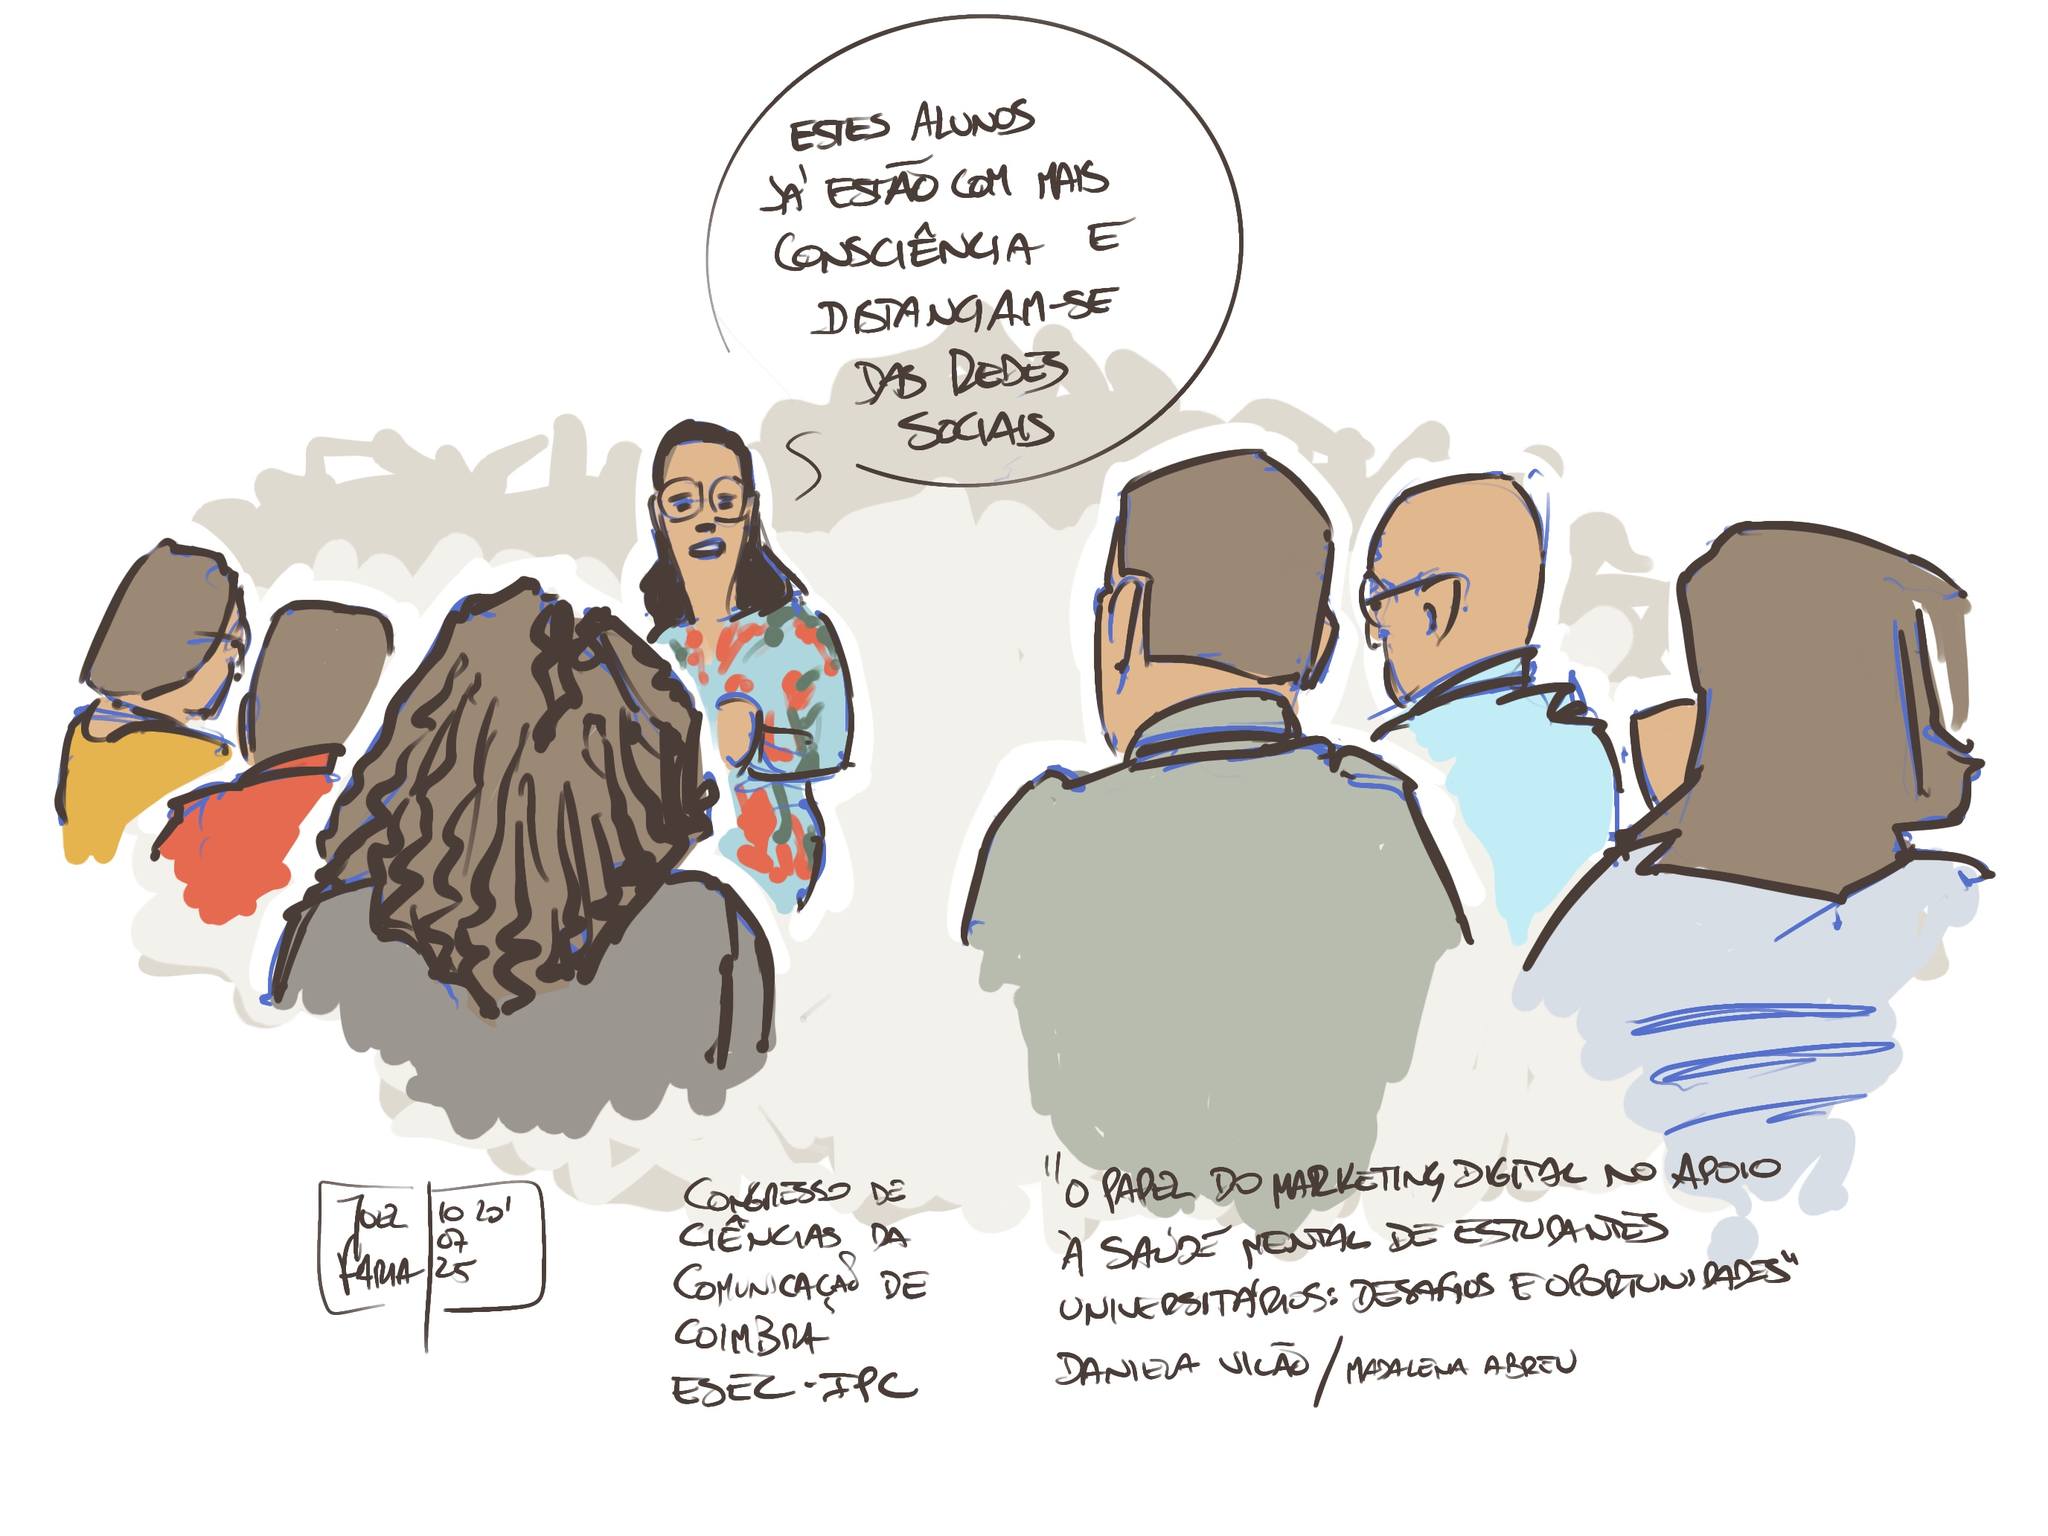 ESTES ALUNOS
JÁ ESTÃO COM MAIS
CONSCIÊNCIA E
DISTANCIAM-SE
DAS REDES
SOCIAIS
JOEL
FARIA
10 20'
07
25
CONGRESSO DE
CIÊNCIAS DA
COMUNICAÇÃO DE
COIMBRA
ESEC - IPC
"O PAPEL DO MARKETING DIGITAL NO APOIO
À SAÚDE MENTAL DE ESTUDANTES
UNIVERSITÁRIOS: DESAFIOS E OPORTUNIDADES"
DANIELA VICÃO / MADALENA ABREU